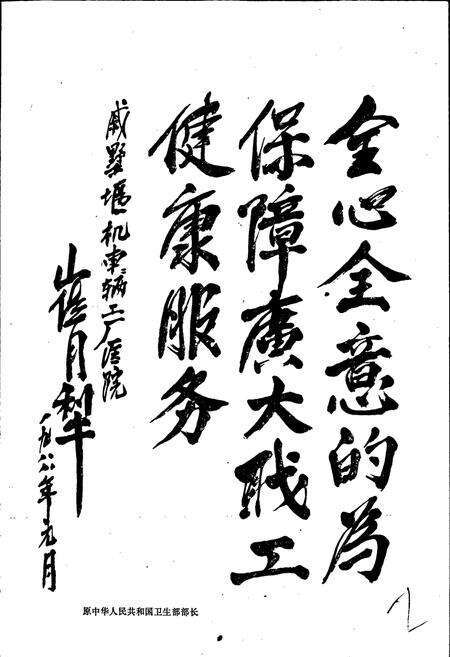 全心全意的为
保障廣大职工
健康服务
戚墅堰机車辆工厂医院
崔月犁
一九八八年元月
原中华人民共和国卫生部部长
2